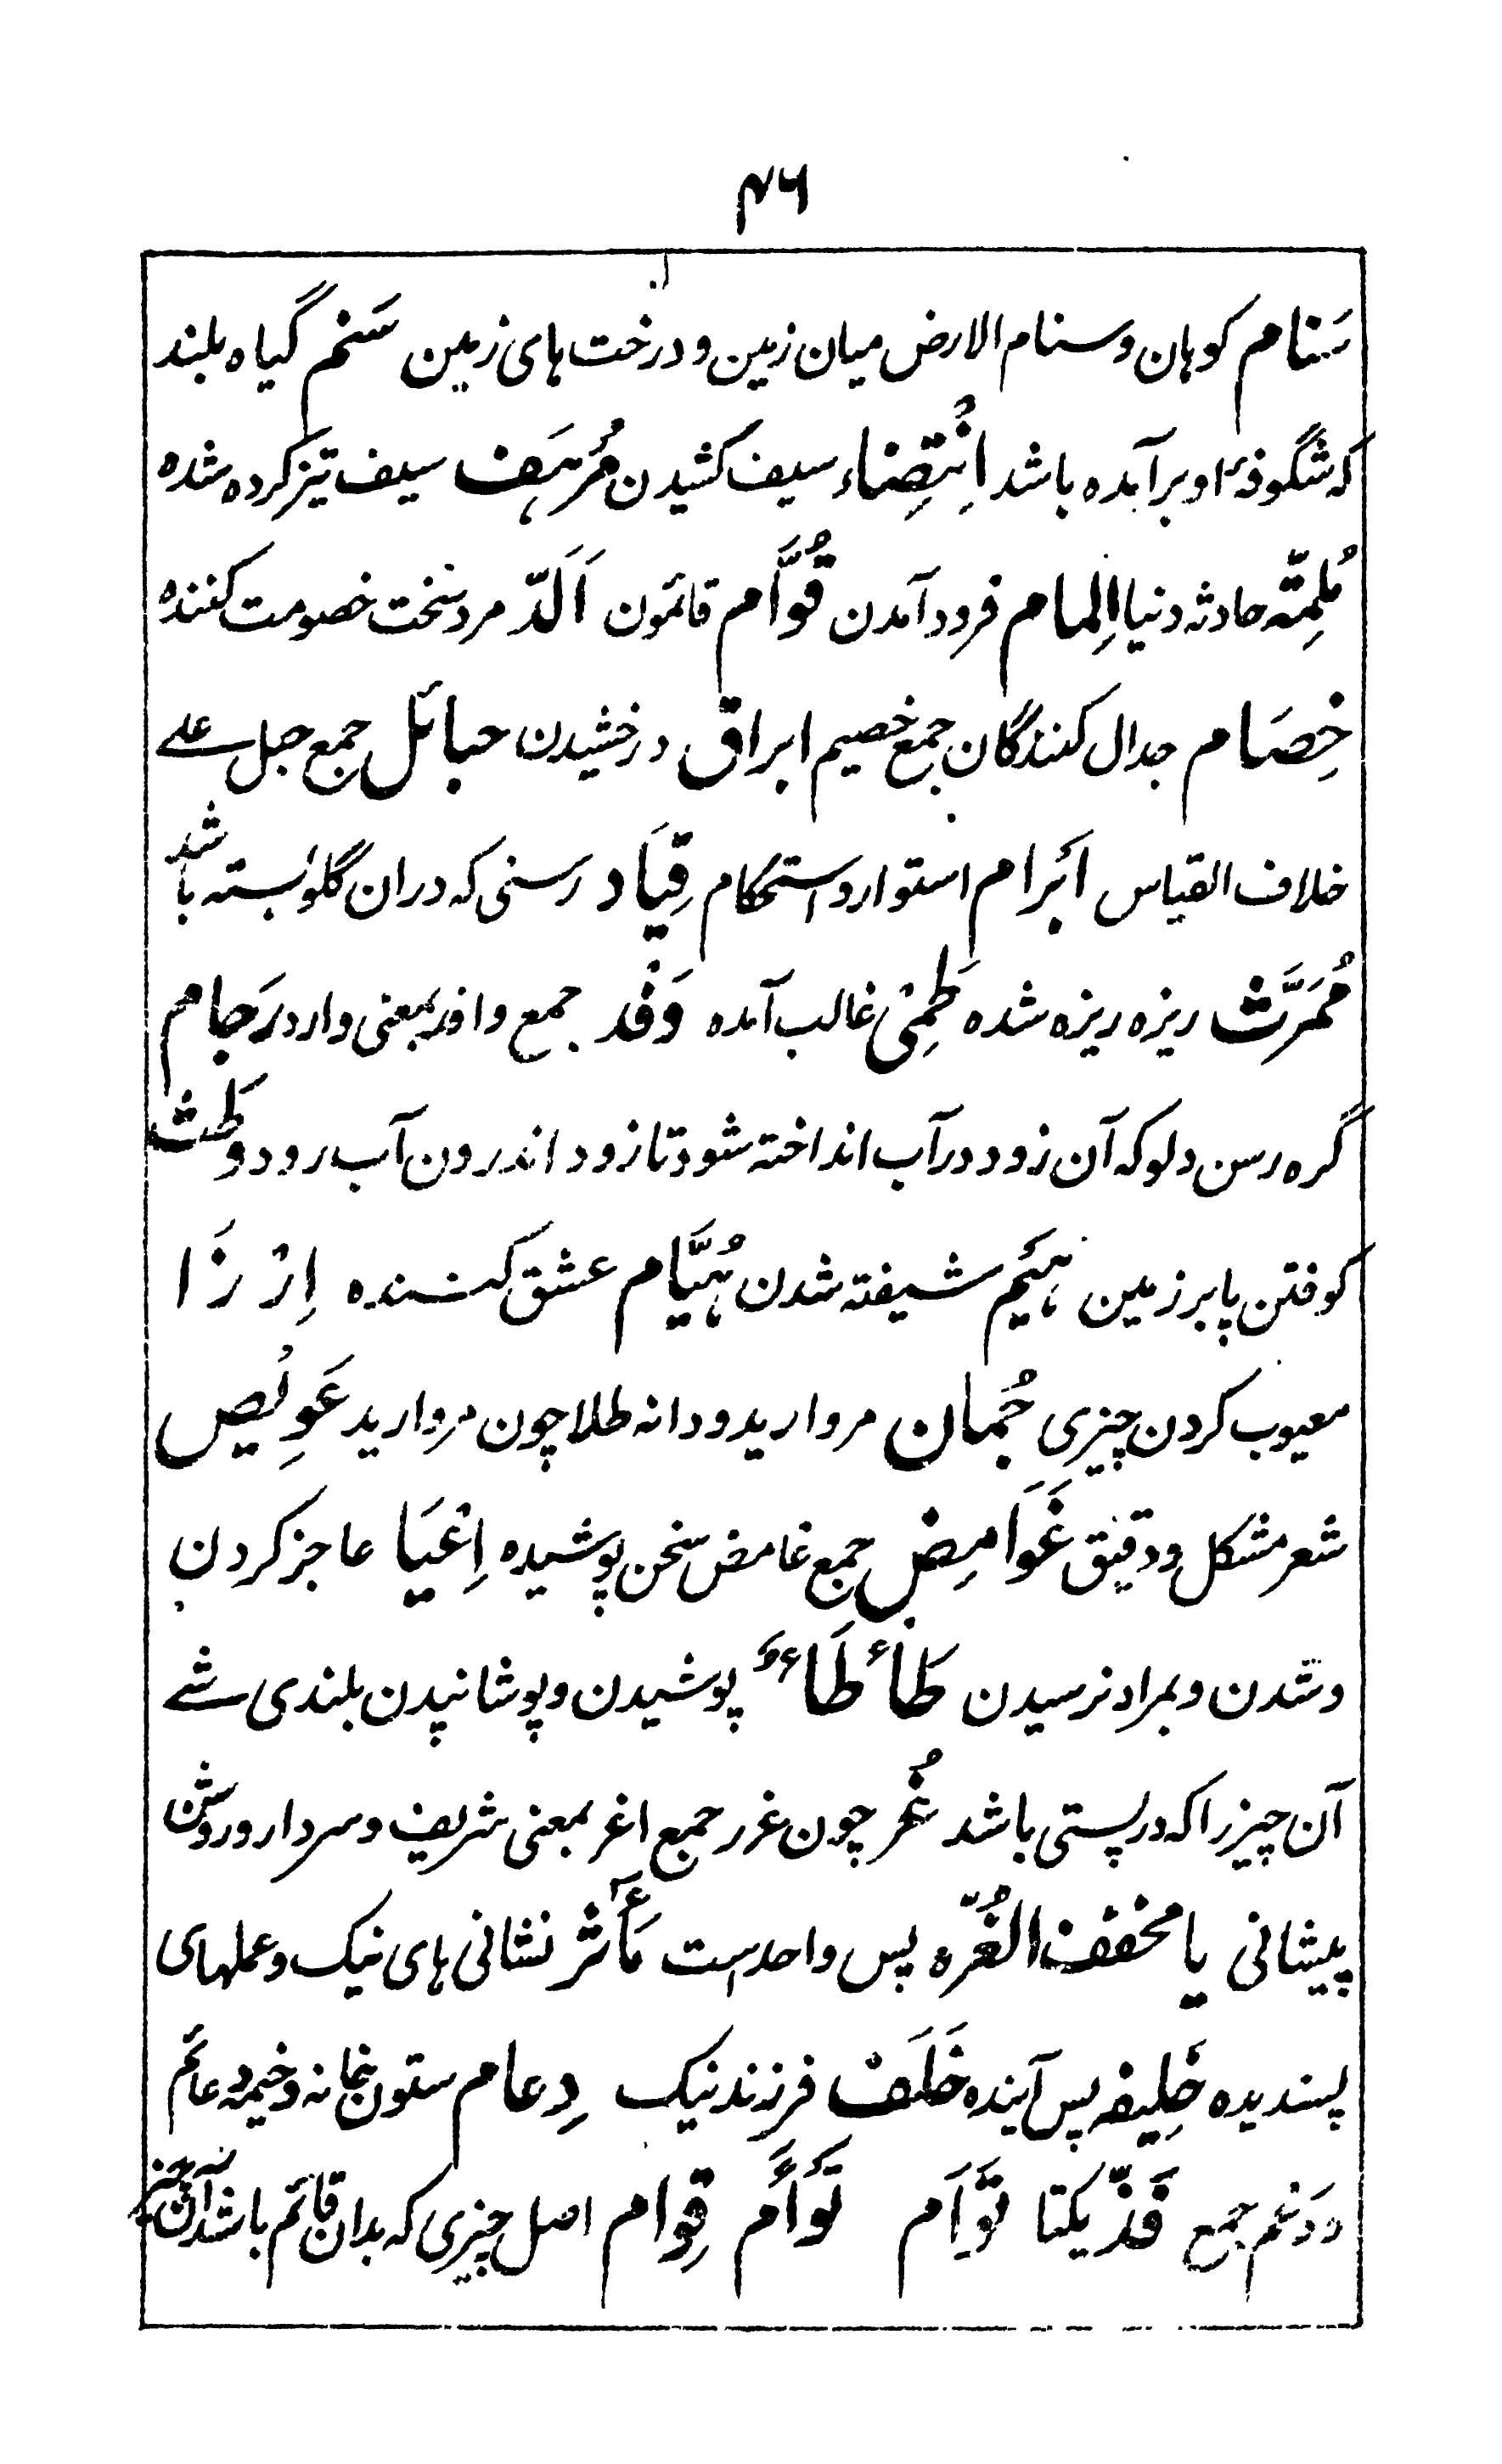 ۴۶
سَنام کوہان و سنام الارض میان زمین و درخت ہای زمین سَنم گیاہ بلند
کہ شگوفۂ او برآمدہ باشد اِنْتِضاء سیف کشیدن مُرہَف سیف تیز کردہ شدہ
مُلِمَّہ حادثہ دنیا اِلمام فرود آمدن قُوَّام قائمون اَلَدّ مرد سخت خصومت کنندہ
خِصَام جدال کنندگان جمع خصیم ابراق درخشیدن حبائل جمع حبل علے
خلاف القیاس اَبرام استوار و استحکام قِیَاد رسنی کہ دران گلو بستہ باشد
مُمَرَّث ریزہ ریزہ شدہ طَمِیْ غالب آمدہ وَفْد جمع وافد بمعنی وارد رَجام
گرہ رسن دلو کہ آن زود در آب انداختہ شود تا زود اندرون آب رود وطث
کوفتن پا بر زمین ہَیم شیفتہ شدن ہُیَّام عشق کنندہ اِزْرَا
معیوب کردن چیزی جُمان مروارید و دانہ طلا چون مروارید عَوِیْص
شعر مشکل و دقیق غَوَامِض جمع غامض سخن پوشیدہ اِعْیَا عاجز کردن
و شدن و بمراد نرسیدن طَأطَاء پوشیدن و پوشانیدن بلندی شے
آن چیز را کہ در پستی باشد غُر چون غرر جمع اغر بمعنی شریف و سردار و روشن
پیشانی یا مخفف الغُرّہ پس واحد است مَآثر نشانی ہای نیک و عملہای
پسندیدہ خَلِیفہ پس آیندہ خَلَفْ فرزند نیک دِعام ستون خانہ و خیمہ دعائم
و دَعم جمع فَذّ یکتا تَوَاَم تَوأَم قِوام اصل چیزی کہ بدان قائم باشد آن چیز